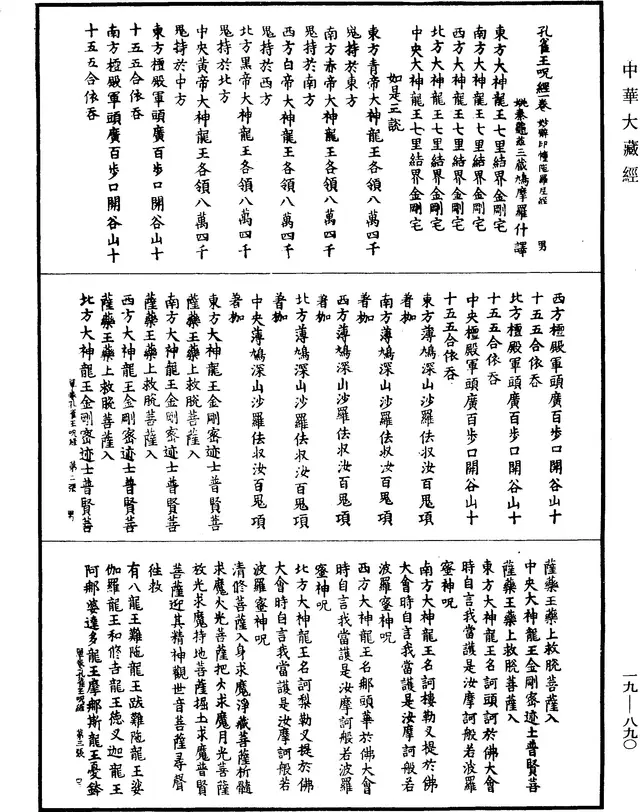 中華大藏經
孔雀王呪經卷 妙辭印幢陁羅尼經 男
姚秦龜茲三藏鳩摩羅什譯
東方大神龍王七里結界金剛宅
南方大神龍王七里結界金剛宅
西方大神龍王七里結界金剛宅
北方大神龍王七里結界金剛宅
中央大神龍王七里結界金剛宅
如是三說
東方青帝大神龍王各領八萬四千
鬼持於東方
南方赤帝大神龍王各領八萬四千
鬼持於南方
西方白帝大神龍王各領八萬四千
鬼持於西方
北方黑帝大神龍王各領八萬四千
鬼持於北方
中央黃帝大神龍王各領八萬四千
鬼持於中方
東方檀殿軍頭廣百步口開谷山十
十五五合依吞
南方檀殿軍頭廣百步口開谷山十
十五五合依吞
西方檀殿軍頭廣百步口開谷山十
十五五合依吞
北方檀殿軍頭廣百步口開谷山十
十五五合依吞
中央檀殿軍頭廣百步口開谷山十
十五五合依吞
東方薄鳩深山沙羅佉叔汝百鬼項
著枷
南方薄鳩深山沙羅佉叔汝百鬼項
著枷
西方薄鳩深山沙羅佉叔汝百鬼項
著枷
北方薄鳩深山沙羅佉叔汝百鬼項
著枷
中央薄鳩深山沙羅佉叔汝百鬼項
著枷
東方大神龍王金剛密迹士普賢菩
薩藥王藥上救脫菩薩入
南方大神龍王金剛密迹士普賢菩
薩藥王藥上救脫菩薩入
西方大神龍王金剛密迹士普賢菩
薩藥王藥上救脫菩薩入
北方大神龍王金剛密迹士普賢菩
孔雀王呪經 第二張 男
薩藥王藥上救脫菩薩入
中央大神龍王金剛密迹士普賢菩
薩藥王藥上救脫菩薩入
東方大神龍王名訶頭訶於佛大會
時自言我當護是汝摩訶般若波羅
蜜神呪
南方大神龍王名訶樓勒叉提於佛
大會時自言我當護是汝摩訶般若
波羅蜜神呪
西方大神龍王名那頭華於佛大會
時自言我當護是汝摩訶般若波羅
蜜神呪
北方大神龍王名訶梨勒叉提於佛
大會時自言我當護是汝摩訶般若
波羅蜜神呪
清修菩薩入身求魔淨藏菩薩析髓
求魔火光菩薩把火求魔月光菩薩
放光求魔持地菩薩掘土求魔普賢
菩薩迎其精神觀世音菩薩尋聲
往救
有八龍王難陁龍王跋難陁龍王娑
伽羅龍王和修吉龍王德叉迦龍王
阿那婆達多龍王摩那斯龍王憂鉢
孔雀王呪經 第三張
一九—八九〇